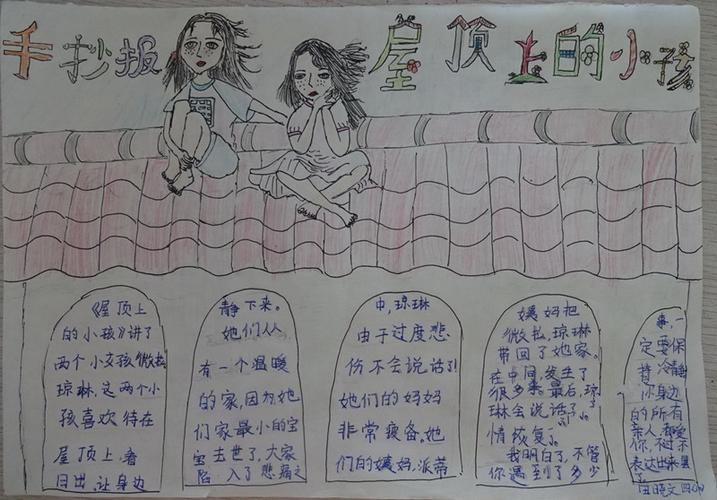 手抄报 屋顶上的小孩
《屋顶上
的小孩》讲了
两个小女孩微
琼琳，这两个小
孩喜欢待在
屋顶上，看
日出，让身边
静下来。
她们人人
有一个温暖
的家，因为她
们家最小的宝
宝去世了，大家
陷入了悲痛之
中，琼琳
由于过度悲
伤不会说话了！
她们的妈妈
非常疲备。她
们的姨妈，派蒂
姨妈把
微，琼琳
带回了她家。
在中间，发生了
很多事。最后，琼
琳会说话了。
情恢复了。
我明白了，不管
你遇到了多少
事，一
定要保
持冷静
你身边
的所有
亲人，都爱
你，不过不
表达出来罢